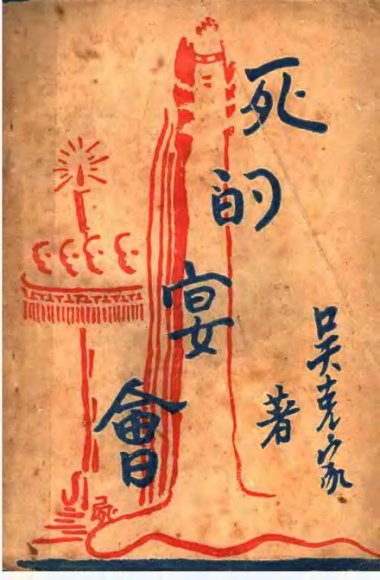 死的宴會
吳克家
著